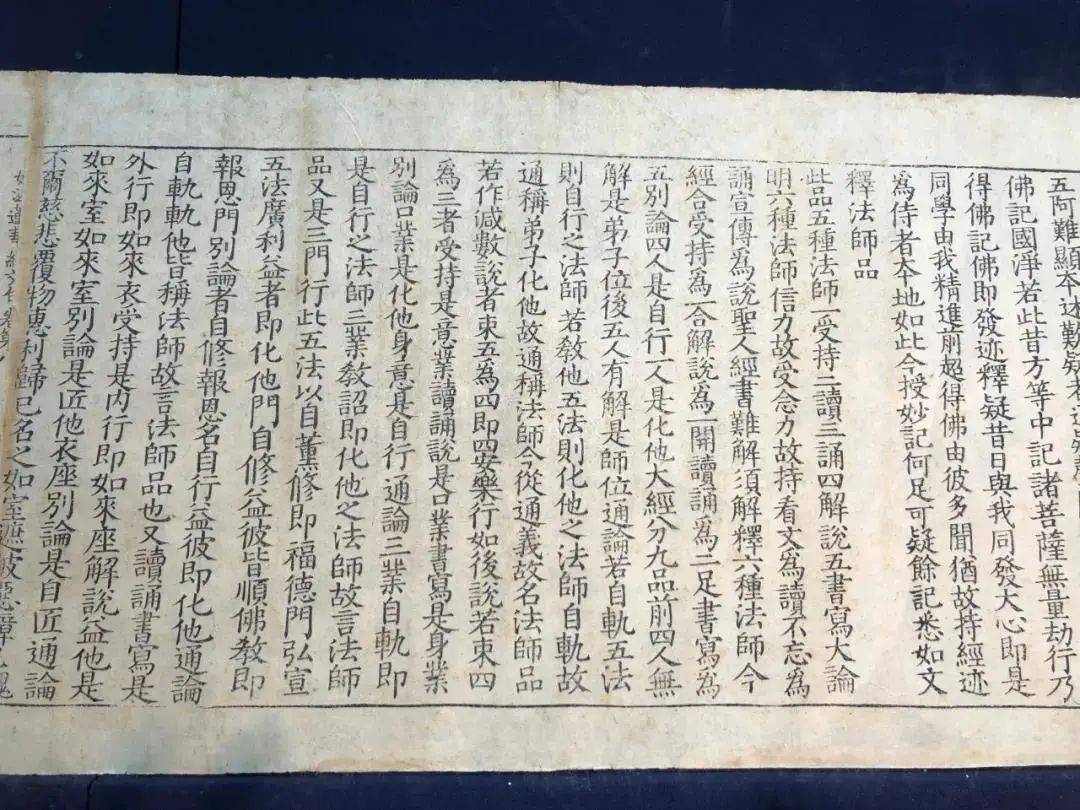 五阿難顯本迹歎疑者
佛記國淨若此昔方等中記諸菩薩無量劫行乃
得佛記佛即發迹釋疑昔日與我同發大心即是
同學由我精進前超得佛由彼多聞猶故持經迹
為侍者本地如此今授妙記何足可疑餘記悉如文
釋法師品
此品五種法師一受持二讀三誦四解說五書寫大論
明六種法師信力故受念力故持看文為讀不忘為
誦宣傳為說聖人經書難解須解釋六種法師今
經合受持為一合解說為一開讀誦為二足書寫為
五別論四人是自行一人是化他大經分九品前四人無
解是弟子位後五人有解是師位通論若自軌五法
則自行之法師若教他五法則化他之法師自軌故
通稱弟子化他故通稱法師今從通義故名法師品
若作減數說者束五為四即四安樂行如後說若束四
為三者受持是意業讀誦說是口業書寫是身業
別論口業是化他身意是自行通論三業自軌即
是自行之法師三業教詔即化他之法師故言法師
品又是三門行此五法以自薰修即福德門弘宣
五法廣利益者即化他門自修益彼皆順佛教即
報恩門別論者自修報恩名自行益彼即化他通論
自軌軌他皆稱法師故言法師品也又讀誦書寫是
外行即如來衣受持是內行即如來座解說益他是
如來室如來室別論是匠他衣座別論是自匠通論
不爾慈悲覆物惠利歸己名之如室遮彼惡障己醜